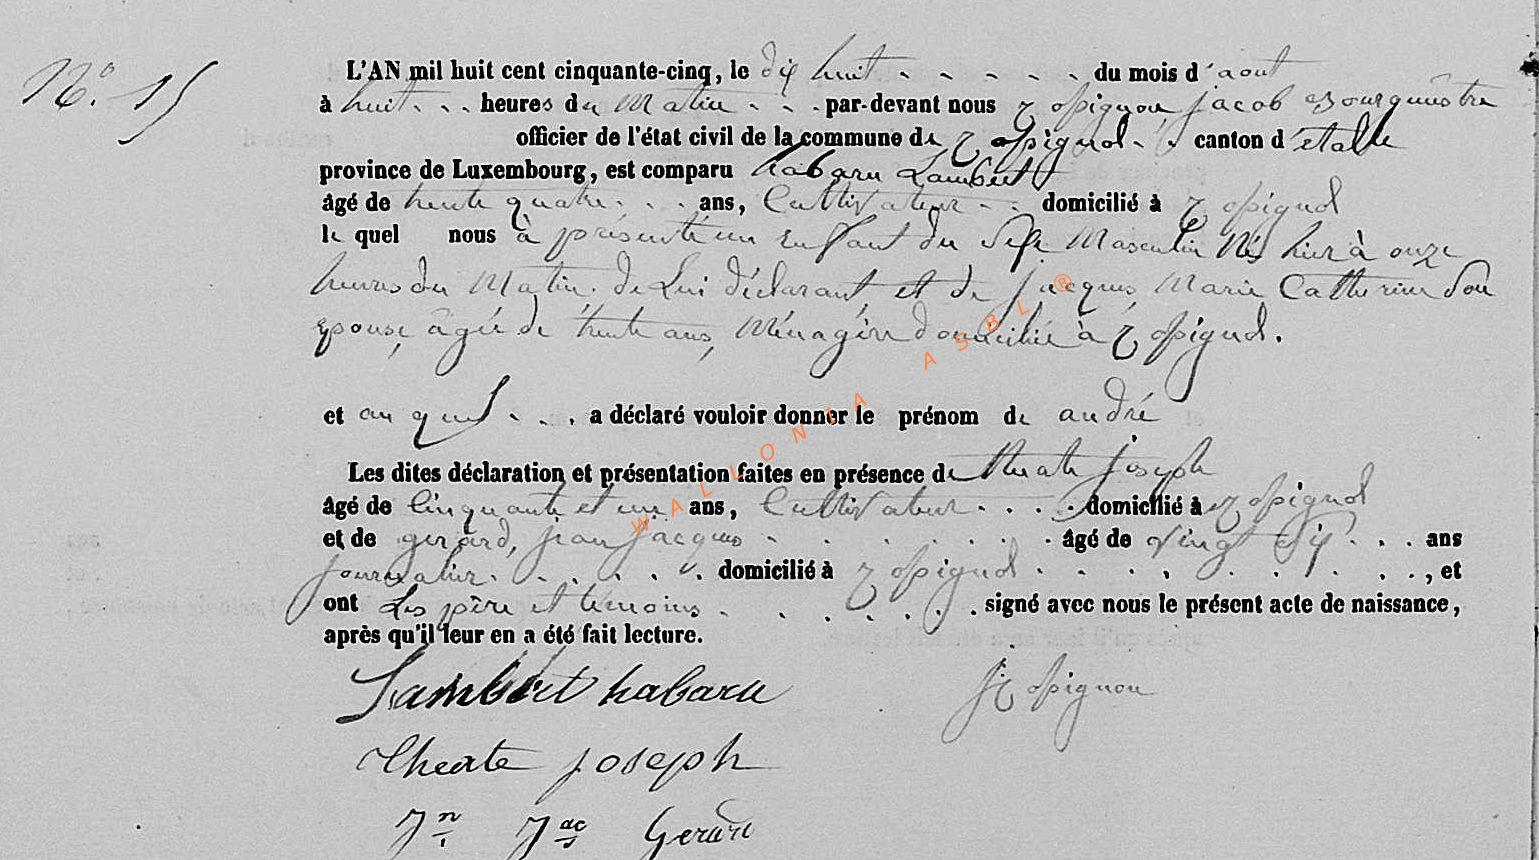 N.° 15
L'AN mil huit cent cinquante-cinq, le dix huit - - - - - du mois d'aout
à huit - - - heures du Matin - - - par-devant nous Rossignon, jacob Bourguestre
officier de l'état civil de la commune de Rossignol - - canton d'étalle
province de Luxembourg, est comparu habaru Lambert
âgé de trente quatre - - - ans, Cultivateur - - domicilié à Rossignol
le quel nous à présenté un Enfant du Sexe Masculin Nés hier à onze
heures du Matin, de Lui déclarant, et de jacques, Marie Catherine Son
Epouse, âgée de trente ans, Ménagère domiciliée à Rossignol.
et au quel - - , a déclaré vouloir donner le prénom de andré
Les dites déclaration et présentation faites en présence de theate joseph
âgé de Cinquante et un ans, Cultivateur - - - - domicilié à Rossignol
et de gerard, jean jacques - - - - - - - âgé de vingt six - - - ans
journalier - - - - - - domicilié à Rossignol - - - - - - - - , et
ont Les père et témoins - - - - - - signé avec nous le présent acte de naissance,
après qu'il leur en a été fait lecture.
Lambert habaru
J Rossignon
Theate joseph
Jn Jac Gerard
WALLONIA ASBL ®